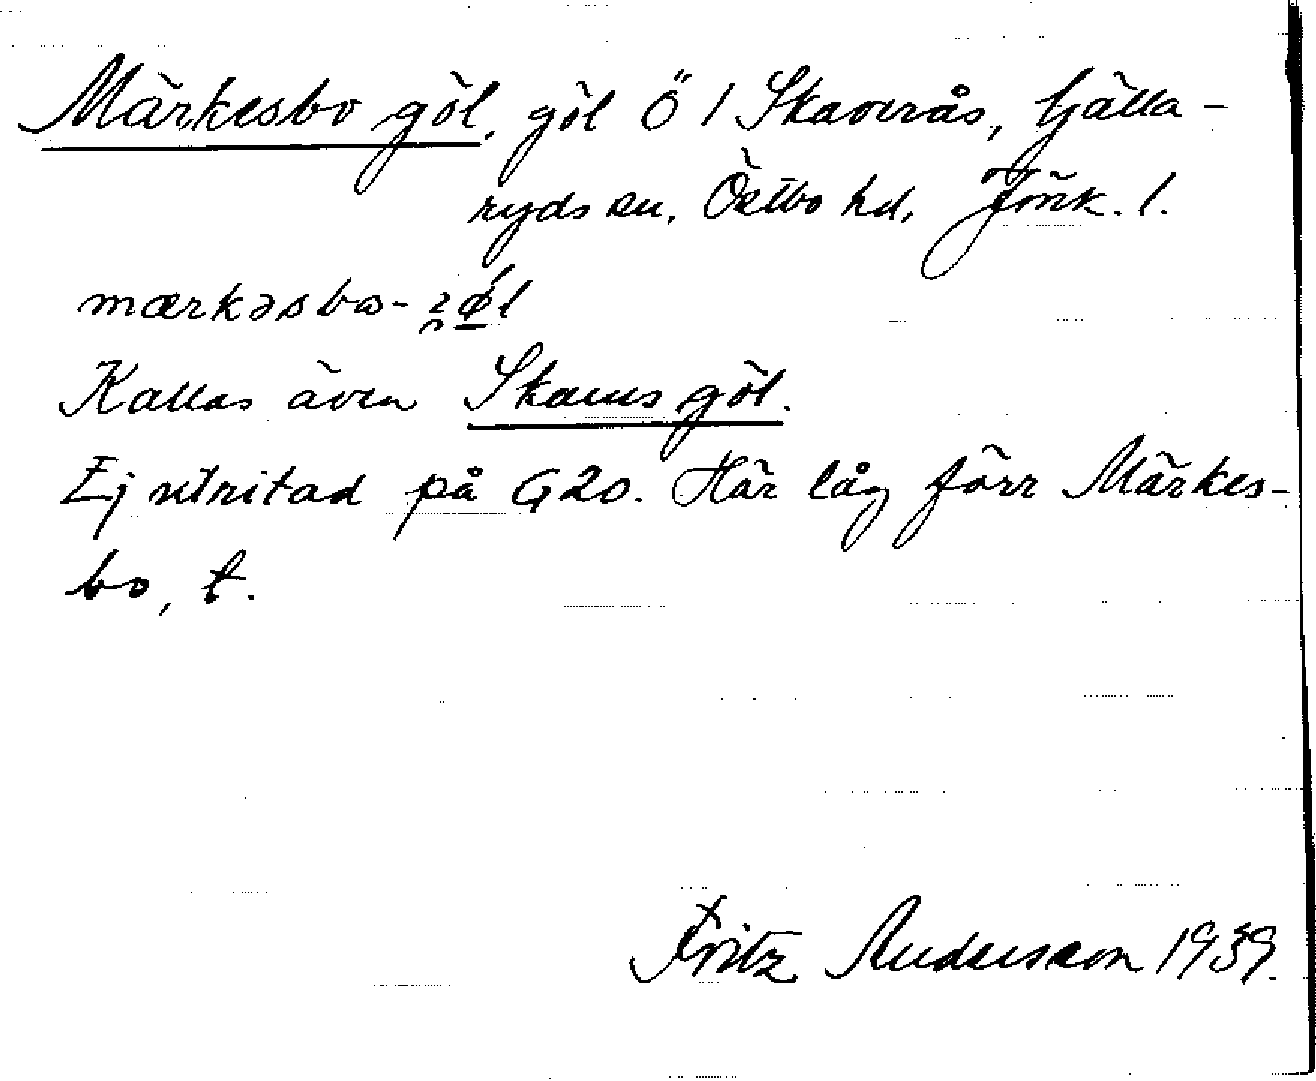 Märkesbo göl, göl Ö / Skaverås, Gjälla-
ryds sn, Östbo hd, Jönk. l.
mærkəsbo-
Kallas även Skams göl.
Ej utritad på G20. Här låg förr Märkes-
bo, t.
Fritz Andersson 1939.